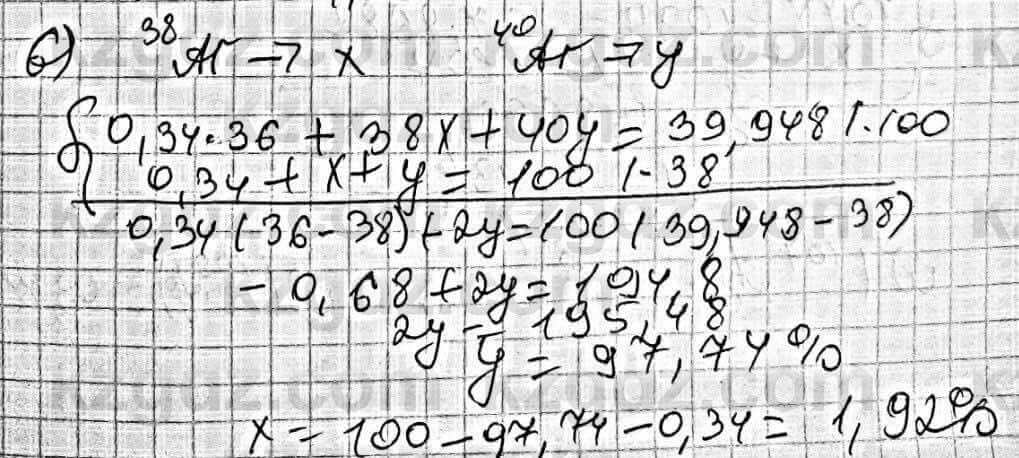 б) ³⁸Ar → x ⁴⁰Ar → y
0,34·36 + 38x + 40y = 39,948 |·100
0,34 + x + y = 100 |·38
0,34(36-38) + 2y = 100(39,948-38)
-0,68 + 2y = 194,8
2y = 195,48
y = 97,74%
x = 100-97,74-0,34 = 1,92%